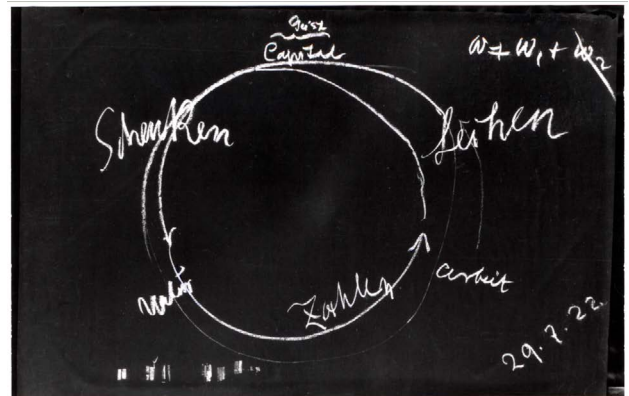 Geist
Capital
Schenken
Leihen
Natur
Zahlen
arbeit
29.7.22.